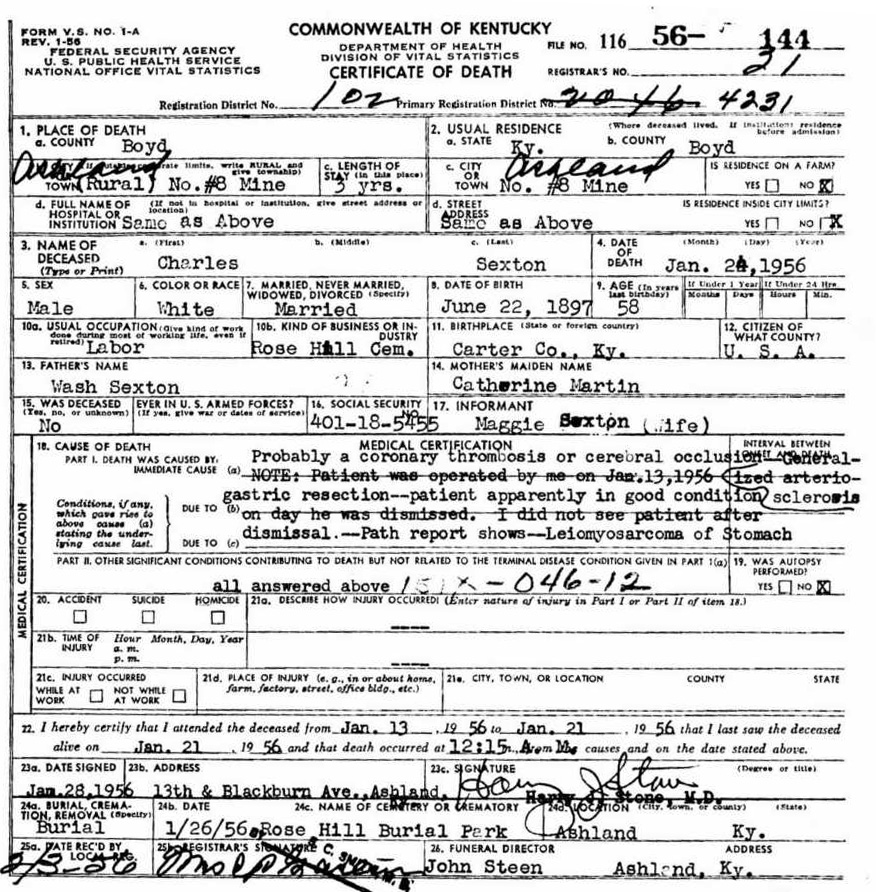 FORM V.S. NO. 1-A
REV. 1-56
FEDERAL SECURITY AGENCY
U. S. PUBLIC HEALTH SERVICE
NATIONAL OFFICE VITAL STATISTICS
COMMONWEALTH OF KENTUCKY
DEPARTMENT OF HEALTH
DIVISION OF VITAL STATISTICS
CERTIFICATE OF DEATH
FILE NO. 116 56- 144
REGISTRAR'S NO. 21
Registration District No. 102 Primary Registration District No. 2046 4231
1. PLACE OF DEATH
a. COUNTY Boyd
2. USUAL RESIDENCE (Where deceased lived. If institution: residence before admission)
a. STATE Ky. b. COUNTY Boyd
Ashland
corporate limits, write RURAL and give township)
TOWN (Rural) No. #8 Mine
c. LENGTH OF STAY (in this place)
3 yrs.
c. CITY OR TOWN Ashland
No. #8 Mine
IS RESIDENCE ON A FARM?
YES NO X
d. FULL NAME OF HOSPITAL OR INSTITUTION (If not in hospital or institution, give street address or location)
Same as Above
d. STREET ADDRESS
Same as Above
IS RESIDENCE INSIDE CITY LIMITS?
YES NO X
3. NAME OF DECEASED (Type or Print)
a. (First) b. (Middle) c. (Last)
Charles Sexton
4. DATE OF DEATH (Month) (Day) (Year)
Jan. 24, 1956
5. SEX
Male
6. COLOR OR RACE
White
7. MARRIED, NEVER MARRIED, WIDOWED, DIVORCED (Specify)
Married
8. DATE OF BIRTH
June 22, 1897
9. AGE (In years last birthday)
58
If Under 1 Year If Under 24 Hrs
Months Days Hours Min.
10a. USUAL OCCUPATION (Give kind of work done during most of working life, even if retired)
Labor
10b. KIND OF BUSINESS OR INDUSTRY
Rose Hill Cem.
11. BIRTHPLACE (State or foreign country)
Carter Co., Ky.
12. CITIZEN OF WHAT COUNTY?
U. S. A.
13. FATHER'S NAME
Wash Sexton
14. MOTHER'S MAIDEN NAME
Catherine Martin
15. WAS DECEASED EVER IN U. S. ARMED FORCES?
(Yes, no, or unknown) (If yes, give war or dates of service)
No
16. SOCIAL SECURITY NO
401-18-5455
17. INFORMANT
Maggie Sexton (Wife)
MEDICAL CERTIFICATION
18. CAUSE OF DEATH
MEDICAL CERTIFICATION
INTERVAL BETWEEN ONSET AND DEATH
PART I. DEATH WAS CAUSED BY:
IMMEDIATE CAUSE (a)
Probably a coronary thrombosis or cerebral occlusion--General-
NOTE: Patient was operated by me on Jan. 13, 1956 ized arterio-
Conditions, if any, which gave rise to above cause (a) stating the underlying cause last.
DUE TO (b)
gastric resection--patient apparently in good condition sclerosis
on day he was dismissed. I did not see patient after
DUE TO (c)
dismissal.--Path report shows--Leiomyosarcoma of Stomach
PART II. OTHER SIGNIFICANT CONDITIONS CONTRIBUTING TO DEATH BUT NOT RELATED TO THE TERMINAL DISEASE CONDITION GIVEN IN PART 1(a)
all answered above 151X-046-12
19. WAS AUTOPSY PERFORMED?
YES NO X
20. ACCIDENT SUICIDE HOMICIDE
21a. DESCRIBE HOW INJURY OCCURRED! (Enter nature of injury in Part I or Part II of item 18.)
21b. TIME OF INJURY Hour Month, Day, Year
a. m.
p. m.
21c. INJURY OCCURRED
WHILE AT WORK NOT WHILE AT WORK
21d. PLACE OF INJURY (e. g., in or about home, farm, factory, street, office bldg., etc.)
21e. CITY, TOWN, OR LOCATION COUNTY STATE
22. I hereby certify that I attended the deceased from Jan. 13, 19 56 to Jan. 21, 19 56 that I last saw the deceased
alive on Jan. 21, 19 56 and that death occurred at 12:15 m., from the causes and on the date stated above.
23a. DATE SIGNED
Jan. 28, 1956
23b. ADDRESS
13th & Blackburn Ave., Ashland,
23c. SIGNATURE (Degree or title)
Stone, M.D.
24a. BURIAL, CREMATION, REMOVAL (Specify)
Burial
24b. DATE
1/26/56
24c. NAME OF CEMETERY OR CREMATORY
Rose Hill Burial Park
24d. LOCATION (City, town, or county) (State)
Ashland Ky.
25a. DATE REC'D BY LOCAL REG.
2/3-56
25b. REGISTRAR'S SIGNATURE
26. FUNERAL DIRECTOR ADDRESS
John Steen Ashland, Ky.